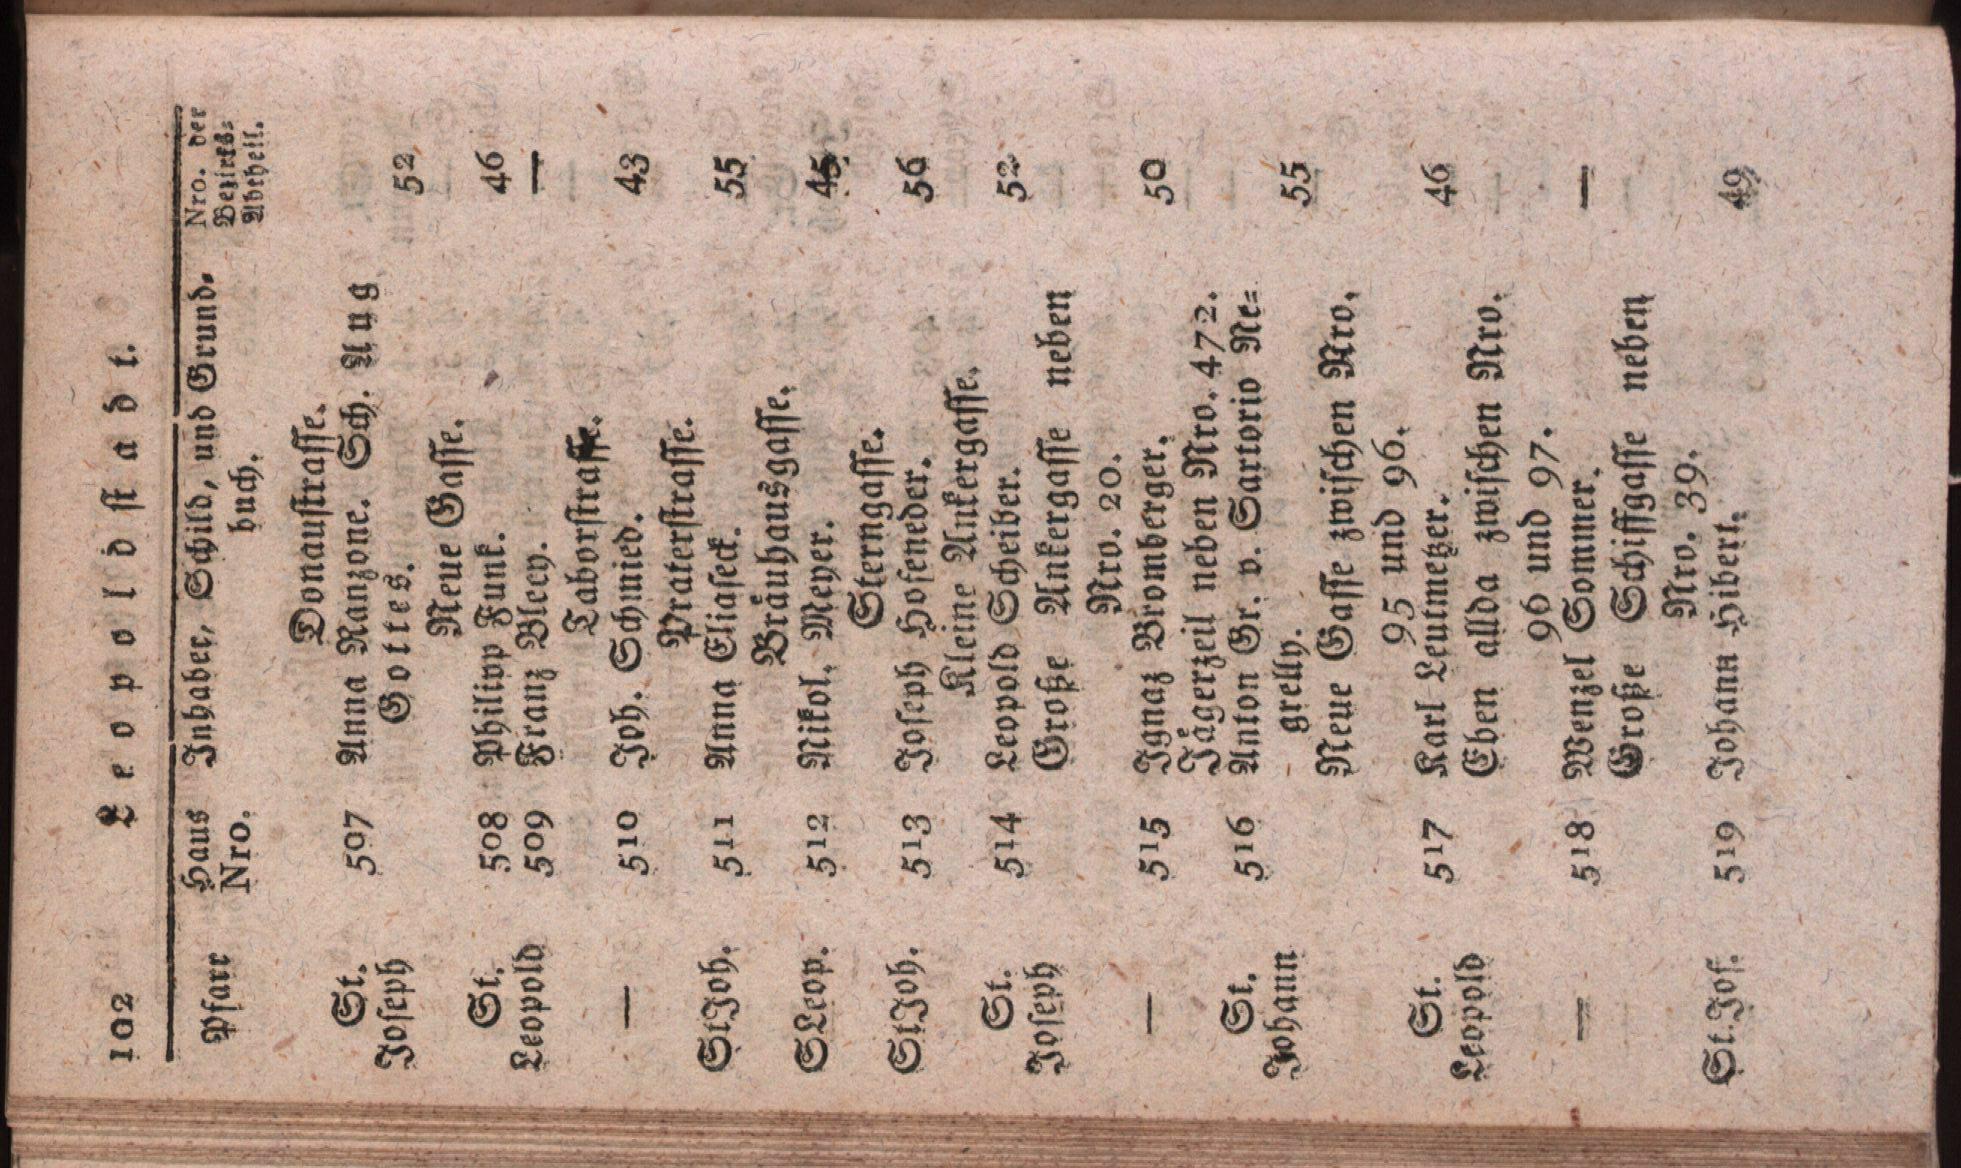 102 Leopoldstadt.
Pfarr Haus Nro. Inhaber, Schild, und Grund- buch. Nro. der Bezirks- Abtheil.
Donaustrasse.
St. 507 Anna Ranzone. Sch. Aug
Joseph Gottes. 52
Neue Gasse.
St. 508 Philipp Funk. 46
Leopold 509 Franz Bleey. —
Taborstrasse.
— 510 Joh. Schmied. 43
Praterstrasse.
St Joh. 511 Anna Eliaseck. 55
Bräuhausgasse.
S Leop. 512 Nikol. Meyer. 45
Sterngasse.
St Joh. 513 Joseph Hoseneder. 56
Kleine Ankergasse.
St. 514 Leopold Scheiber. 52
Joseph Große Ankergasse neben
Nro. 20.
— 515 Ignaz Bromberger. 50
Jägerzeil neben Nro. 472.
St. 516 Anton Gr. v. Sartorio Ne-
Johann grelly. 55
Neue Gasse zwischen Nro.
95 und 96.
St. 517 Karl Leutmetzer. 46
Leopold Eben allda zwischen Nro.
96 und 97.
— 518 Wenzel Sommer. —
Große Schiffgasse neben
Nro. 39.
St. Jos. 519 Johann Hibert. 49